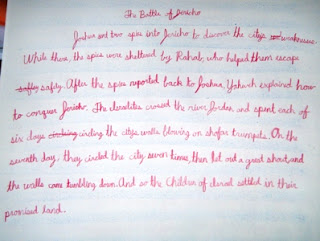 The Battle of Jericho
Joshua sent two spies into Jericho to discover the citys weaknesses.
While there, the spies were sheltered by Rahab, who helped them escape
safley safely. After the spies reported back to Joshua, Yahweh explained how
to conquer Jericho. The Israelites crossed the river Jordan and spent each of
six days circling the citys walls blowing on shofar trumpets. On the
seventh day, they circled the city seven times, then let out a great shout, and
the walls came tumbling down. And so the Children of Israel settled in their
promised land.